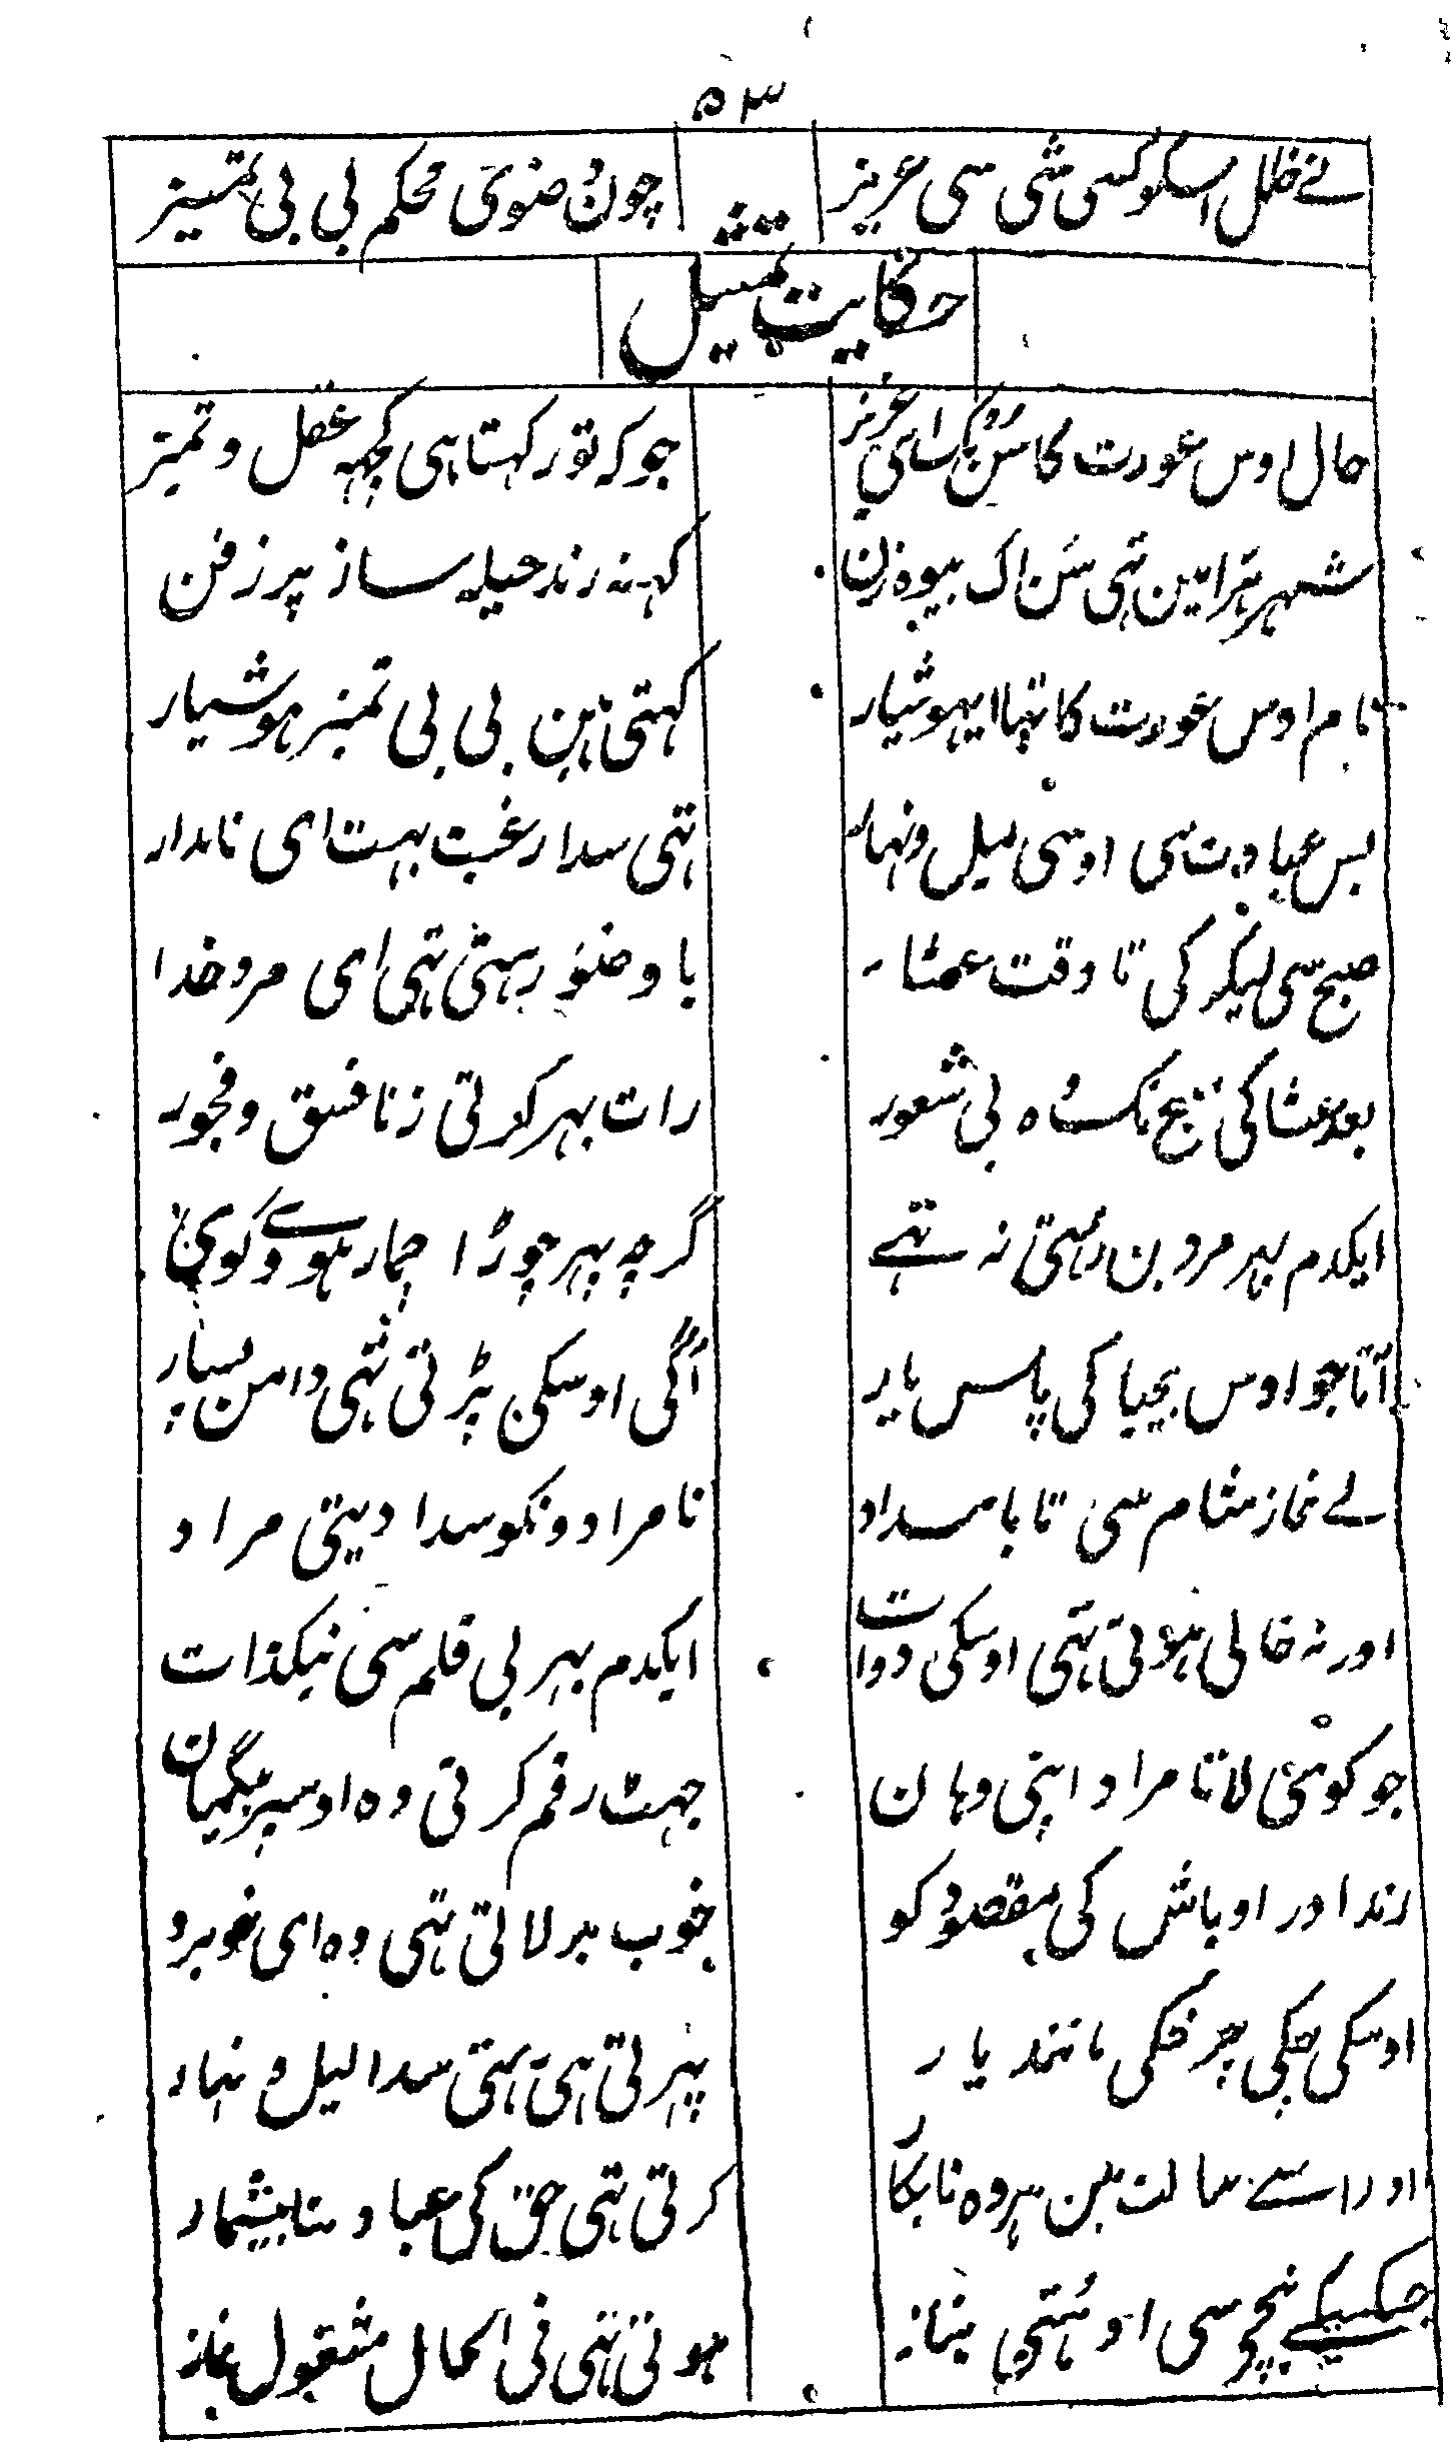 ۵۳
نے خلل اسکو کسی شی سی عزیز
چون وضوی محکم بی بی تمیز
حکایت تمثیل
حال اوس عورت کا سن اسی عزیز
جو کہ تو رکہتا ہی کچہہ عقل و تمیز
شہر ہرا مین تہی سن اک بیوہ زن
کہنہ رند حیلہ ساز پر ز فن
نام اوس عورت کا تہا ایہوشیار
کہتی ہین بی بی تمیز ہوشیار
بس عبادت سی اوسی لیل و نہار
تہی سدا رغبت بہت ای نامدار
صبح سی لیکر کی تا وقت عشا
با وضو رہتی تہی ای مرد خدا
بعد عشا کی وہ بی شعور
رات بہر کرتی زنا فسق و فجور
ایکدم بہر مرد بن رہتی نہ تہے
گرچہ پہر چوڑا چمار ہووے کوئی
آتا جو اوس بیحیا کی پاس یار
آگی اوسکی پڑتی تہی دامن پسار
لے نماز شام سی تا بامداد
نامرادونکو سدا دیتی مراد
اور نہ خالی ہوتی تہی اوسکی دوات
ایکدم بہر بی قلم سی نیکذات
جو کوئی لاتا مراد اپنی وہان
جہٹ رقم کرتی وہ اوسپر بیگمان
رند اور اوباش کی مقصود کو
خوب بر لاتی تہی وہ ای خوبرو
اوسکی چکی چرخکی مانند یار
پہرتی ہی تہی سدا لیل و نہار
اور اسے حالت مین پہر وہ نابکار
کرتی تہی حق کی عبادت بیشمار
جسکیکے نیچے سی اوٹہتی بناز
ہوتی تہی فی الحال مشغول نماز